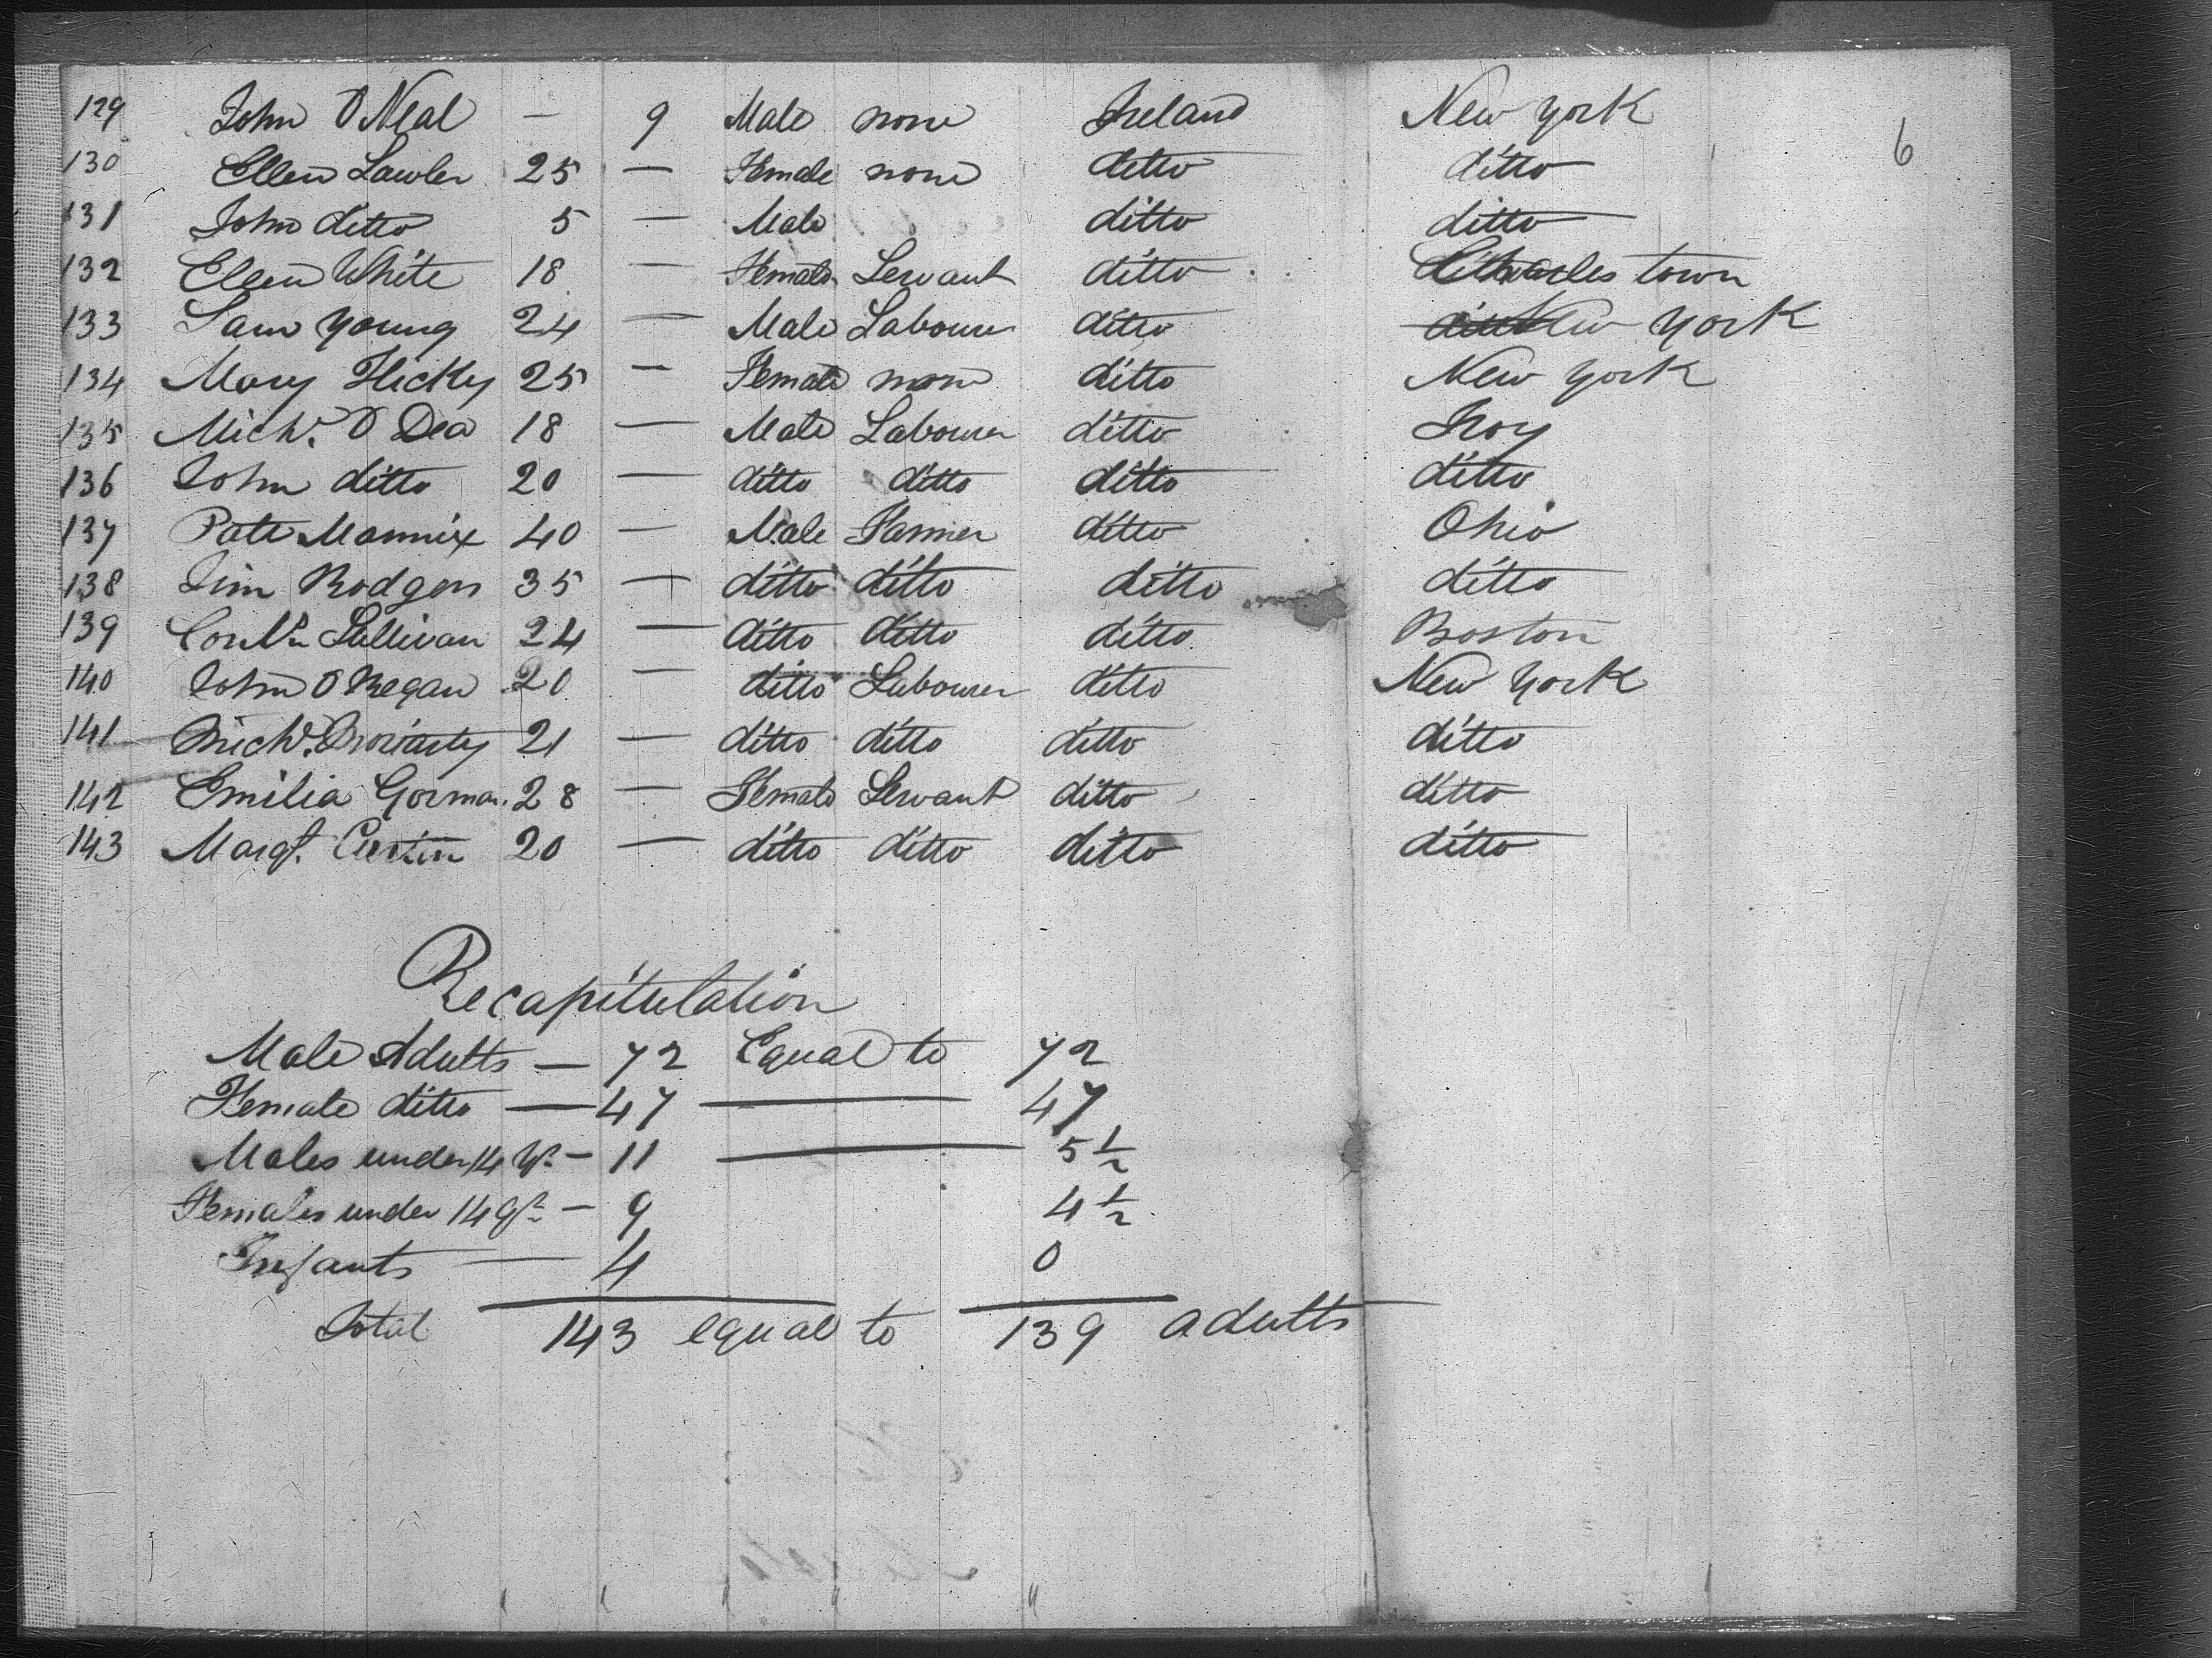 6
129 John O Neal — 9 Male none Ireland New York
130 Ellen Lawler 25 — Female none ditto ditto
131 John ditto 5 — Male ditto ditto
132 Ellen White 18 — Female Servant ditto Charles town
133 Sam Young 24 — Male Labourer ditto New York
134 Mary Hicky 25 — Female none ditto New York
135 Michl. O Dea 18 — Male Labourer ditto Troy
136 John ditto 20 — ditto ditto ditto ditto
137 Patt Mannix 40 — Male Farmer ditto Ohio
138 Jim Rodgers 35 — ditto ditto ditto ditto
139 Sullivan 24 — ditto ditto ditto Boston
140 John O Regan 20 — ditto Labourer ditto New York
141 Michl. Moriarty 21 — ditto ditto ditto ditto
142 Emilia Gorman 28 — Female Servant ditto ditto
143 Margt. Curtin 20 — ditto ditto ditto ditto
Recapitulation
Male Adults — 72 Equal to 72
Female ditto — 47 — 47
Males under 14 Yrs — 11 — 5 1/2
Females under 14 Yrs — 9 4 1/2
Infants — 4 0
Total 143 equal to 139 adults